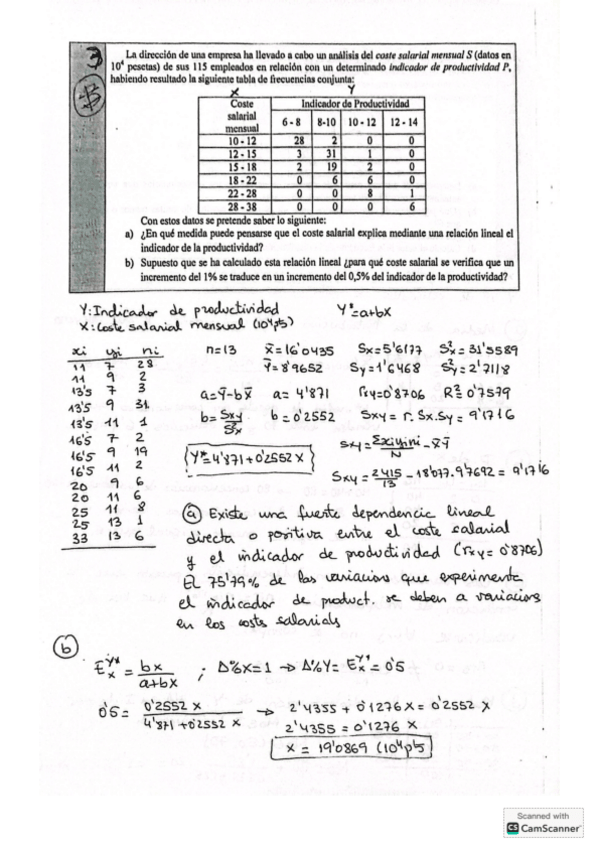 3
La dirección de una empresa ha llevado a cabo un análisis del coste salarial mensual S (datos en
10⁴ pesetas) de sus 115 empleados en relación con un determinado indicador de productividad P,
habiendo resultado la siguiente tabla de frecuencias conjunta:
X Y
Coste salarial mensual Indicador de Productividad
6 - 8 8-10 10 - 12 12 - 14
10 - 12 28 2 0 0
12 - 15 3 31 1 0
15 - 18 2 19 2 0
18 - 22 0 6 6 0
22 - 28 0 0 8 1
28 - 38 0 0 0 6
Con estos datos se pretende saber lo siguiente:
a) ¿En qué medida puede pensarse que el coste salarial explica mediante una relación lineal el
indicador de la productividad?
b) Supuesto que se ha calculado esta relación lineal ¿para qué coste salarial se verifica que un
incremento del 1% se traduce en un incremento del 0,5% del indicador de la productividad?
Y: Indicador de productividad Y*=a+bX
X: Coste salarial mensual (10⁴ pts)
xi yi ni
11 7 28
11 9 2
13'5 7 3
13'5 9 31
13'5 11 1
16'5 7 2
16'5 9 19
16'5 11 2
20 9 6
20 11 6
25 11 8
25 13 1
33 13 6
n=13 x̄=16'0435 Sx=5'6177 S²x=31'5589
ȳ=8'9652 Sy=1'6468 S²y=2'7118
a=Ȳ-bX̄ a=4'871 rxy=0'8706 R²=0'7579
b=Sxy/S²x b=0'2552 Sxy=r.Sx.Sy=9'1716
Y*=4'871+0'2552X
Sxy=Σxiyini/N - x̄ȳ
Sxy=2415/13 - 18'077·9'7692=9'1716
a) Existe una fuerte dependencia lineal
directa o positiva entre el coste salarial
y el indicador de productividad (rxy=0'8706)
El 75'79% de las variacions que experimenta
el indicador de product. se deben a variacions
en los costs salarials
b)
E_x^Y*=bx/a+bx ; Δ%X=1 → Δ%Y=E_x^Y*=0'5
0'5=0'2552X/4'871+0'2552X → 2'4355+0'1276X=0'2552X
2'4355=0'1276X
X=19'0869 (10⁴pts)
Scanned with
CS CamScanner